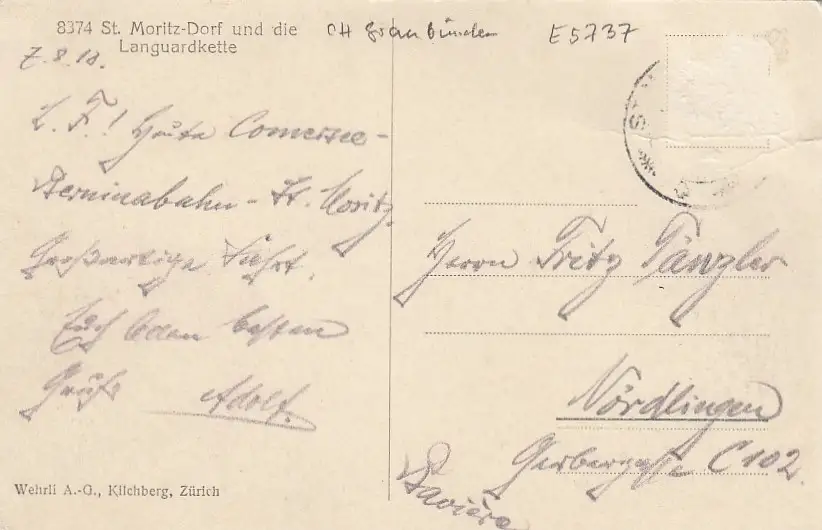 8374 St. Moritz-Dorf und die
Languardkette
CH Graubünden
E5737
7.8.10.
L. F.! Heute Comersee -
Berninabahn - St. Moritz.
Großartige Fahrt.
Euch allen besten
Gruß Adolf.
Herrn Fritz Tänzler
Nördlingen
Gerbergasse C 102.
Bavière
Wehrli A.-G., Kilchberg, Zürich